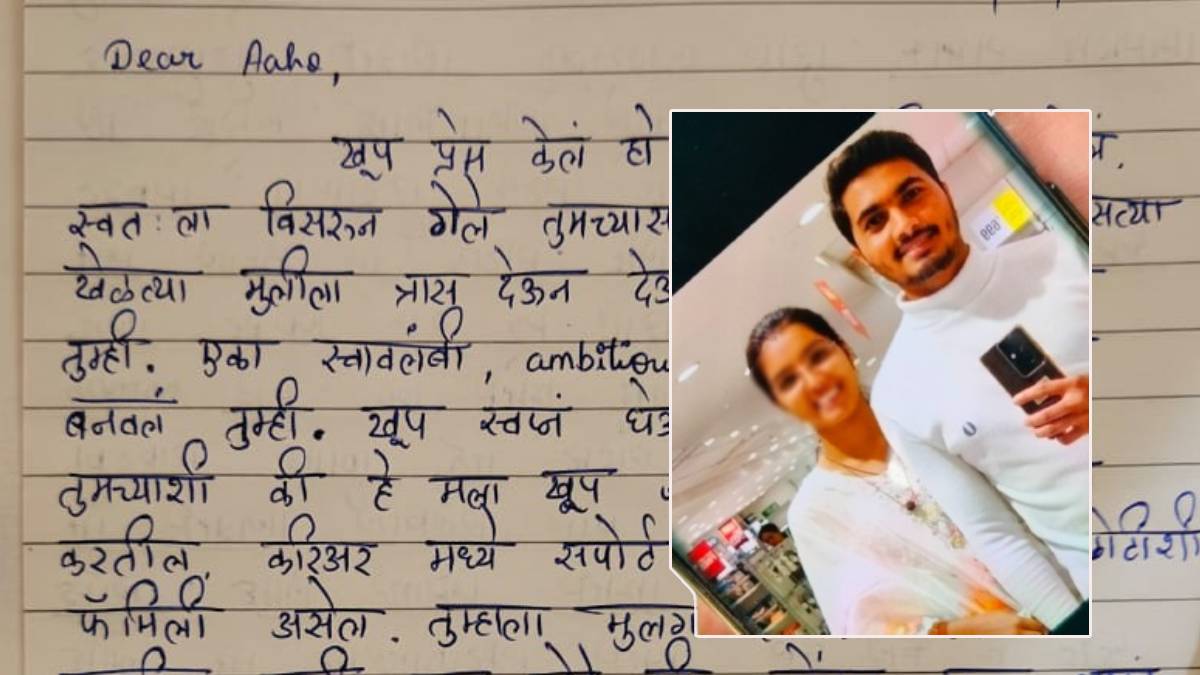 Dear Aaho,
खूप प्रेम केलं हो
स्वतःला विसरून गेले तुमच्यास सत्या
खेळत्या मुलीला त्रास देऊन देऊ
तुम्ही. एका स्वावलंबी, ambitiou
बनवलं तुम्ही. खूप स्वप्नं घेऊ
तुमच्याशी की हे मला खूप
करतील, करिअर मध्ये सपोर्ट
फॅमिली असेल. तुम्हाला मुलग